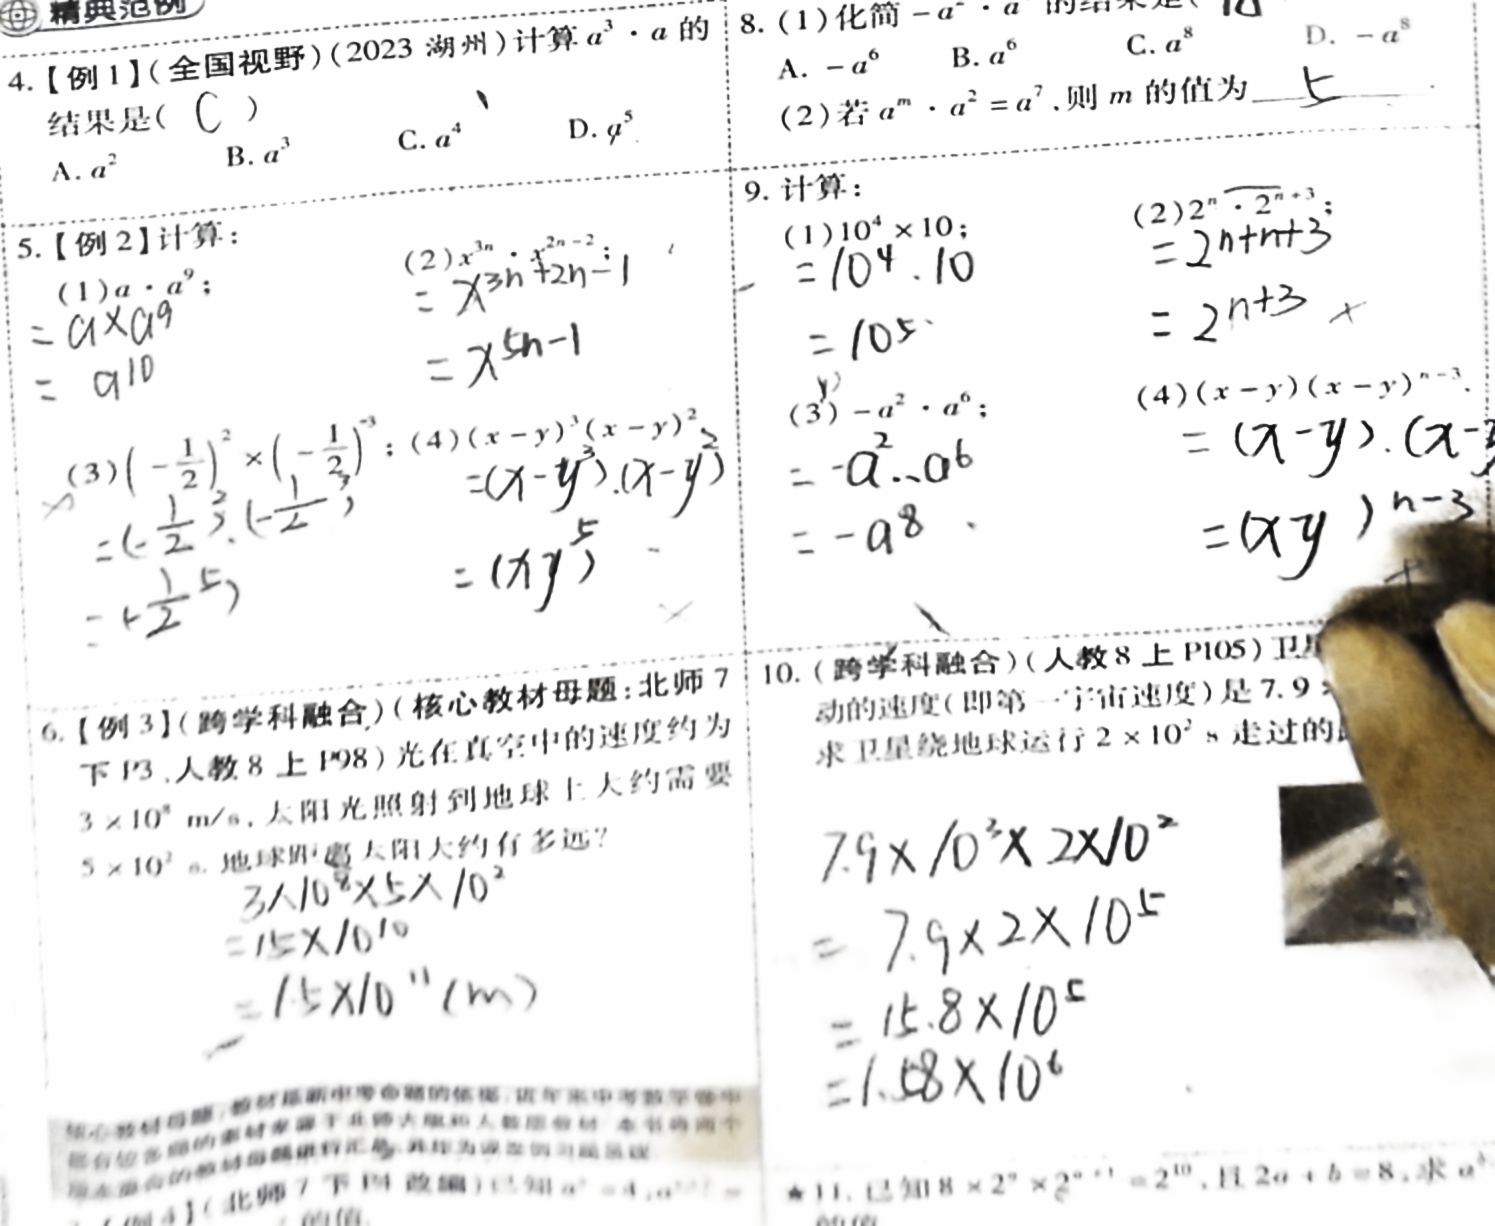 精典范例
4.【例1】(全国视野)(2023 湖州)计算 a³·a 的
结果是( C )
A. a² B. a³ C. a⁴ D. a⁵
5.【例2】计算:
(1) a·a⁹;
= a×a⁹
= a¹⁰
(2) x³ⁿ·x²ⁿ⁻²;
= x³ⁿ⁺²ⁿ⁻¹
= x⁵ⁿ⁻¹
(3) (-1/2)² × (-1/2)⁻³;
= (-1/2)²·(-1/2)³
= (-1/2)⁵
(4) (x-y)³(x-y)²
= (x-y³)·(x-y²)
= (xy⁵)
6.【例3】(跨学科融合)(核心教材母题:北师7
下P3、人教8上P98)光在真空中的速度约为
3×10⁸ m/s,太阳光照射到地球上大约需要
5×10² s.地球距离太阳大约有多远?
3×10⁸×5×10²
=15×10¹⁰
=1.5×10¹¹(m)
【例4】(北师7下P4改编)已知
的值.
8. (1)化简 -a²·a 的结果是(
A. -a⁶ B. a⁶ C. a⁸ D. -a⁸
(2)若 aᵐ·a²=a⁷,则 m 的值为 5
9. 计算:
(1) 10⁴×10;
= 10⁴·10
= 10⁵
(2) 2ⁿ·2ⁿ⁺³;
= 2ⁿ⁺ⁿ⁺³
= 2ⁿ⁺³ ×
(3) -a²·a⁶;
= -a²·a⁶
= -a⁸
(4) (x-y)(x-y)ⁿ⁻³.
= (x-y)·(x-y
= (xy)ⁿ⁻³
10. (跨学科融合)(人教8上P105)卫星
动的速度(即第一宇宙速度)是 7.9×
求卫星绕地球运行 2×10² s 走过的
7.9×10³×2×10²
= 7.9×2×10⁵
= 15.8×10⁵
= 1.58×10⁶
★11. 已知 8×2ᵃ×2ᵃ⁺¹=2¹⁰,且 2a+b=8,求 aᵇ
的值